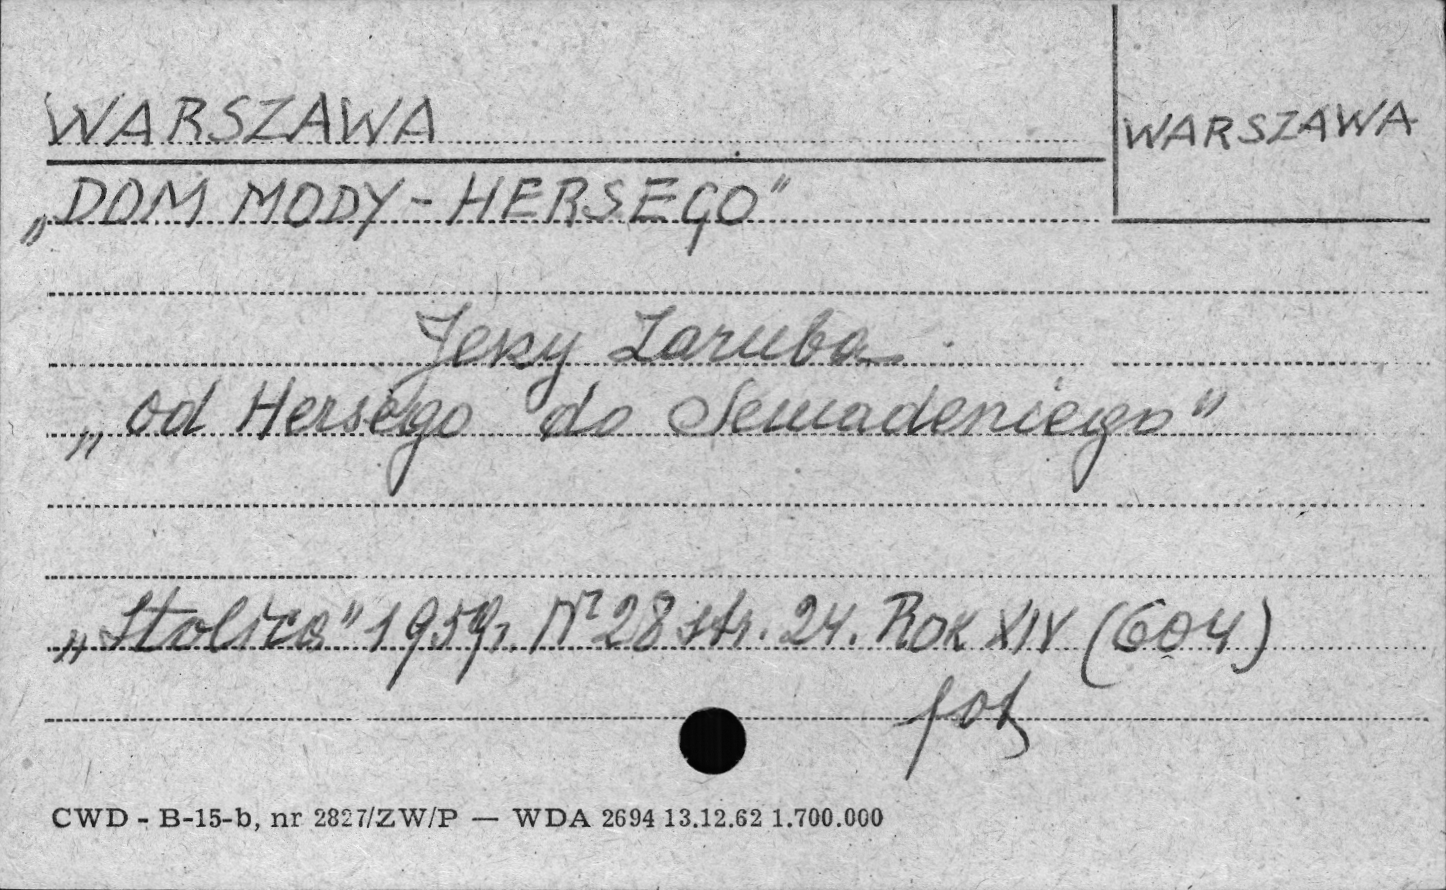 WARSZAWA
WARSZAWA
„DOM MODY - HERSEGO"
Jerzy Zaruba
„od Hersego do Semadeniego"
„Stolica" 1959r. Nr 28 str. 24. Rok XIV (604)
fot
CWD - B-15-b, nr 2827/ZW/P — WDA 2694 13.12.62 1.700.000